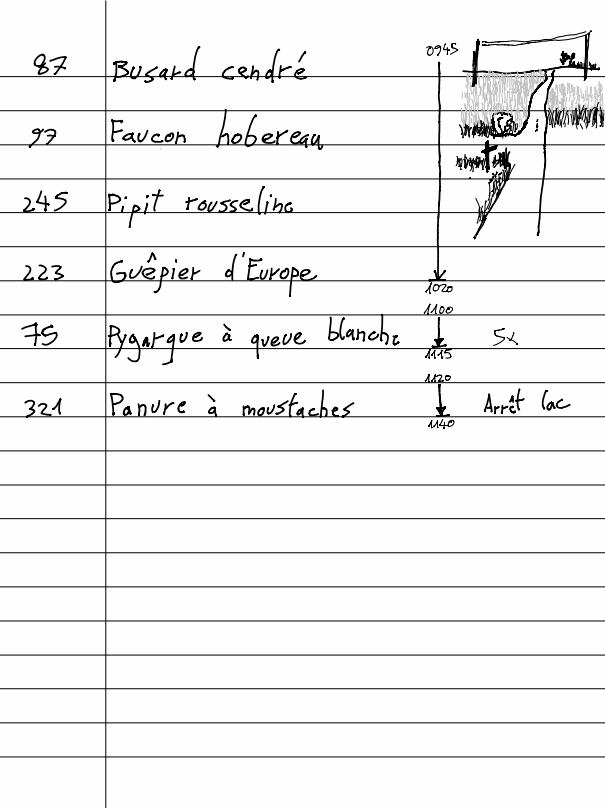 0945
87 Busard cendré
97 Faucon hobereau
245 Pipit rousseline
223 Guêpier d'Europe
1020
1100
75 Pygargue à queue blanche 5x
1115
1120
321 Panure à moustaches Arrêt lac
1140